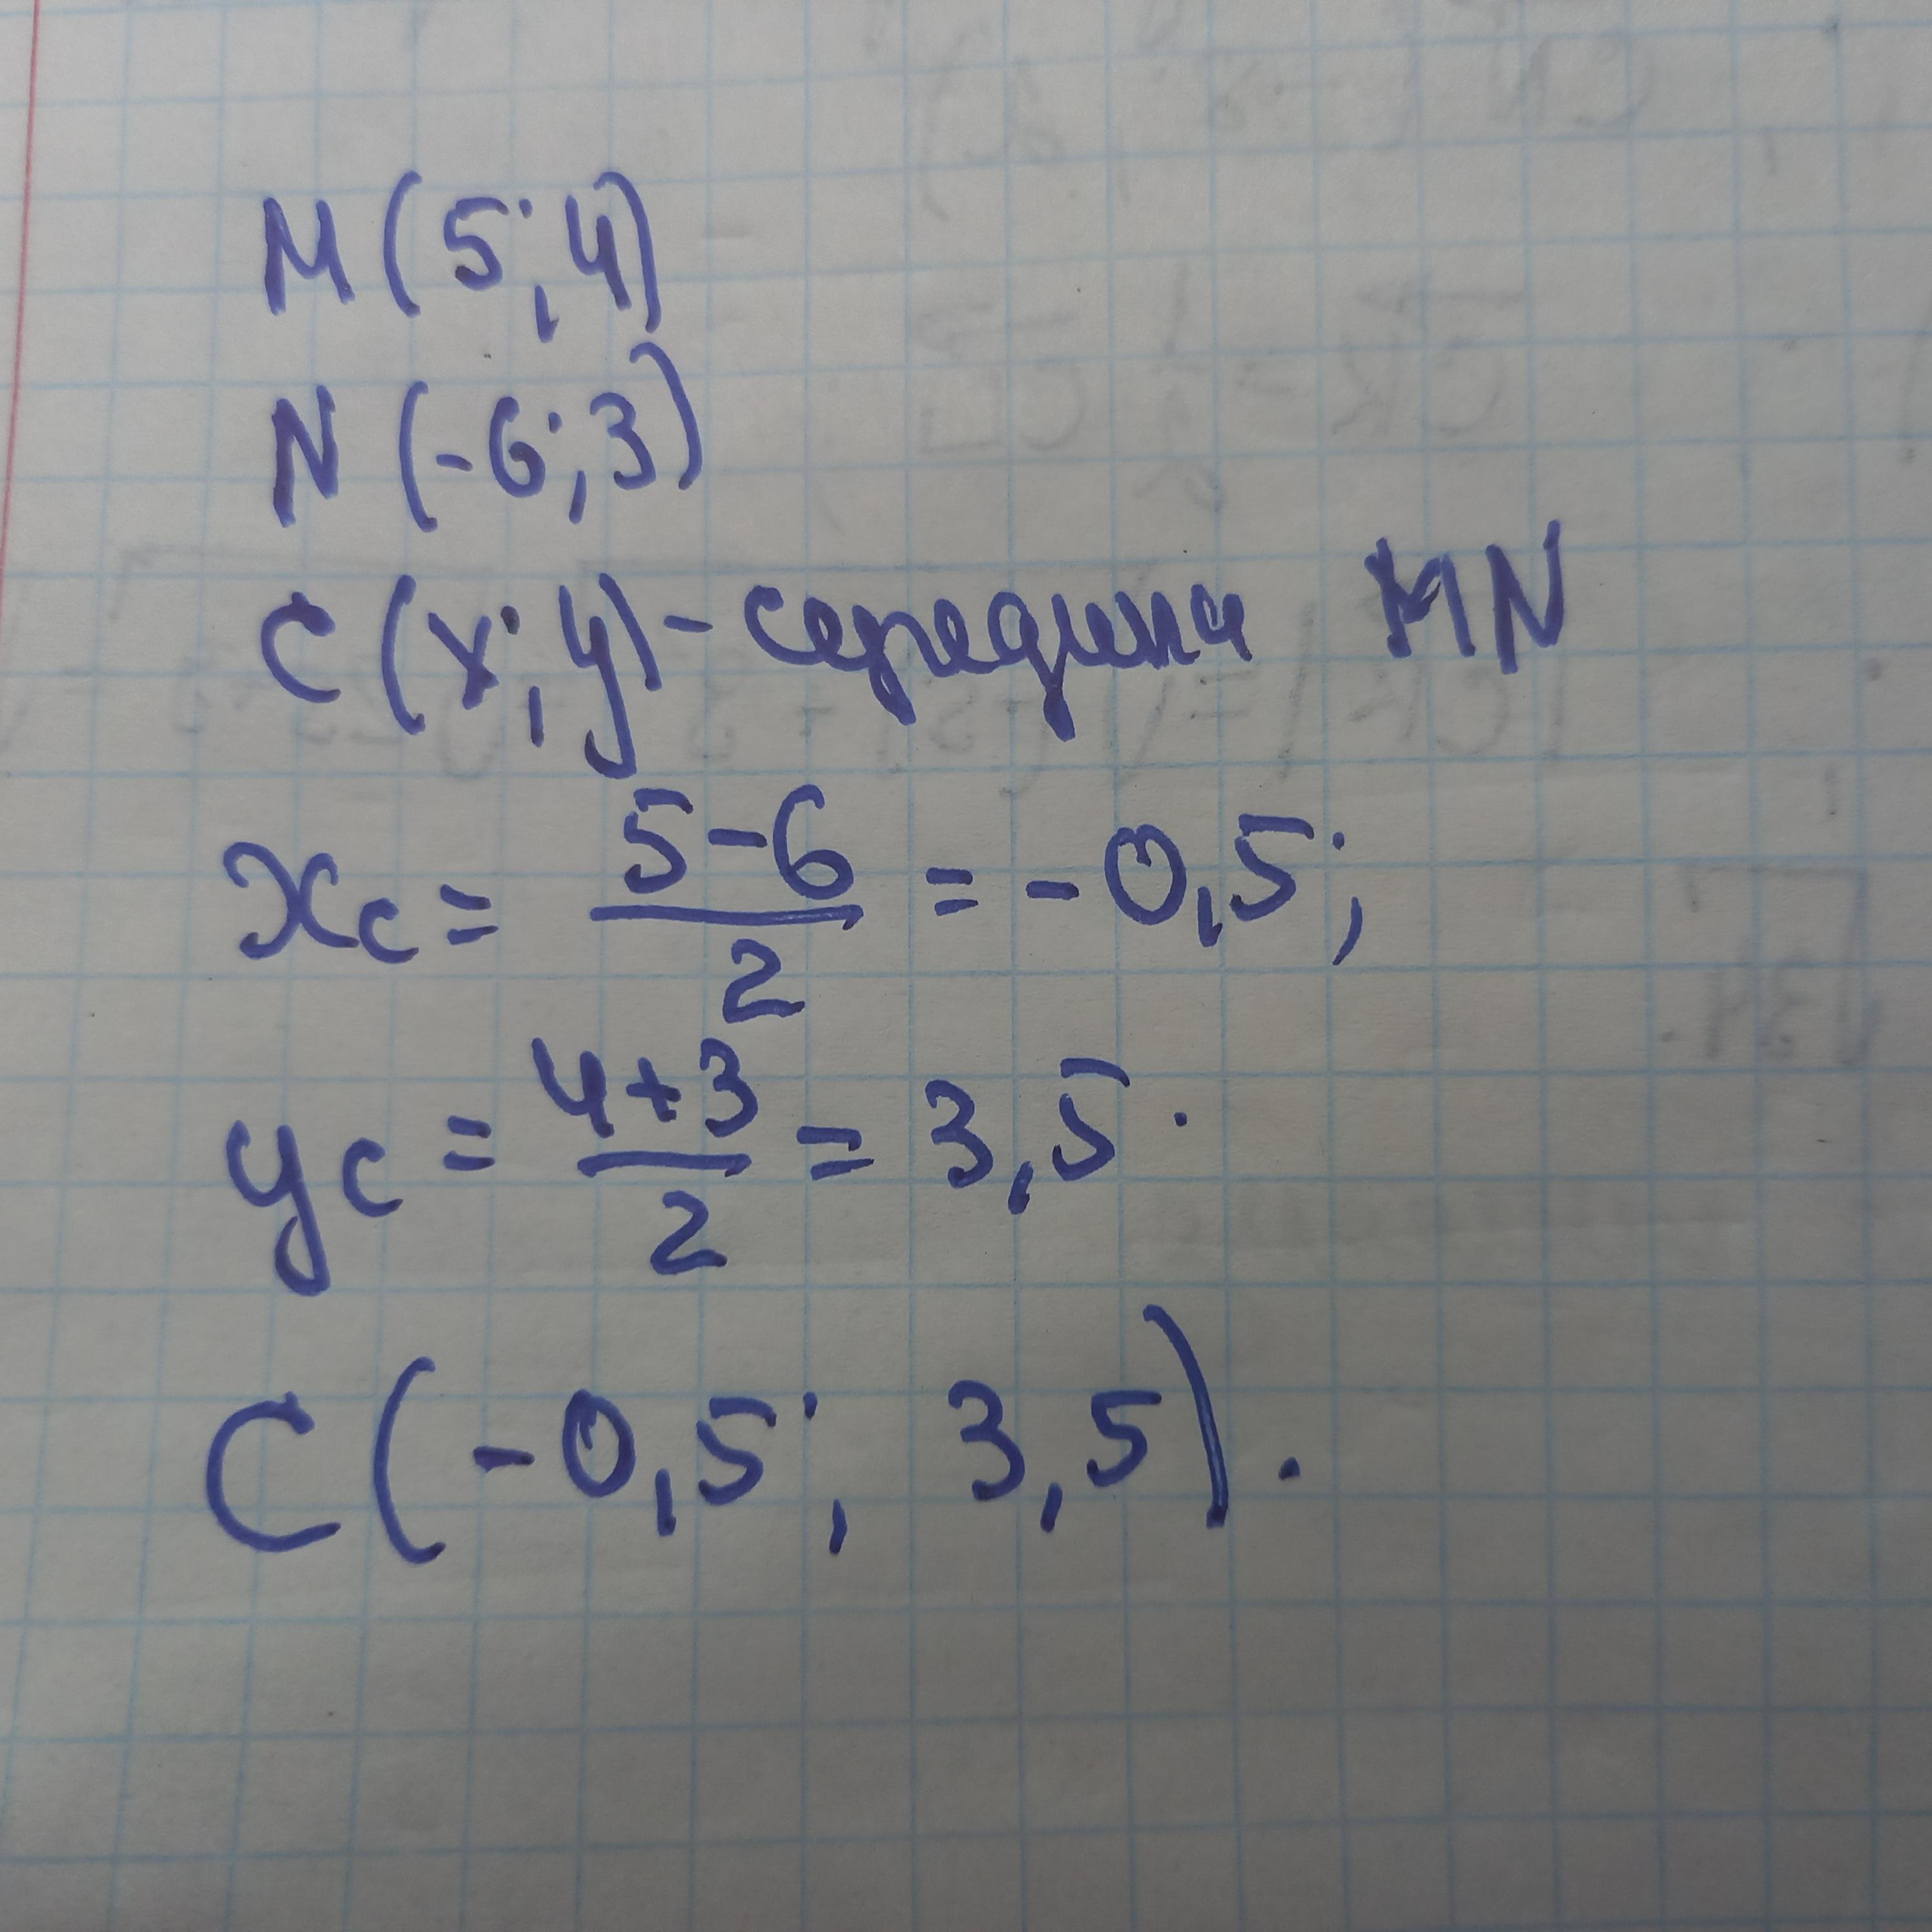 M(5;4)
N(-6;3)
C(x;y)-середина MN
xc = 5-6/2 = -0,5;
yc = 4+3/2 = 3,5.
C(-0,5; 3,5).